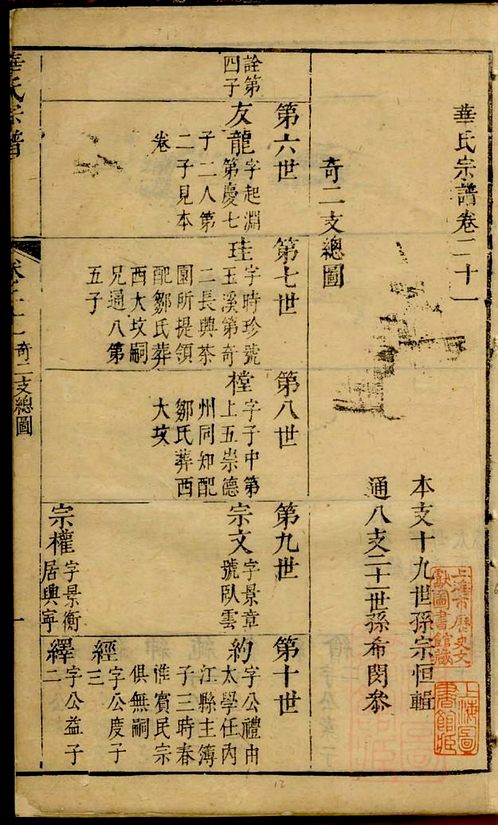 華氏宗譜卷二十一
本支十九世孫宗恒輯
通八支二十二世孫希閔參
奇二支總圖
第六世
詮第
四子
友龍
字起淵
第慶七
子二人第
二子見本
卷
第七世
珪
字時珍號
玉溪第奇
二長興茶
園所提領
配鄒氏葬
西大坟嗣
兄通八第
五子
第八世
樘
字子中第
上五崇德
州同知配
鄒氏葬西
大坟
第九世
宗文
字景章
號臥雲
宗權
字景衡
居興寧
第十世
約
字公禮由
太學任內
江縣主簿
子三時春
惟賓民宗
俱無嗣
經
字公度子
三
繹
字公益子
二
華氏宗譜
奇二支總圖
一
上海市歷史文
獻圖書館藏
上海圖
書館藏
12